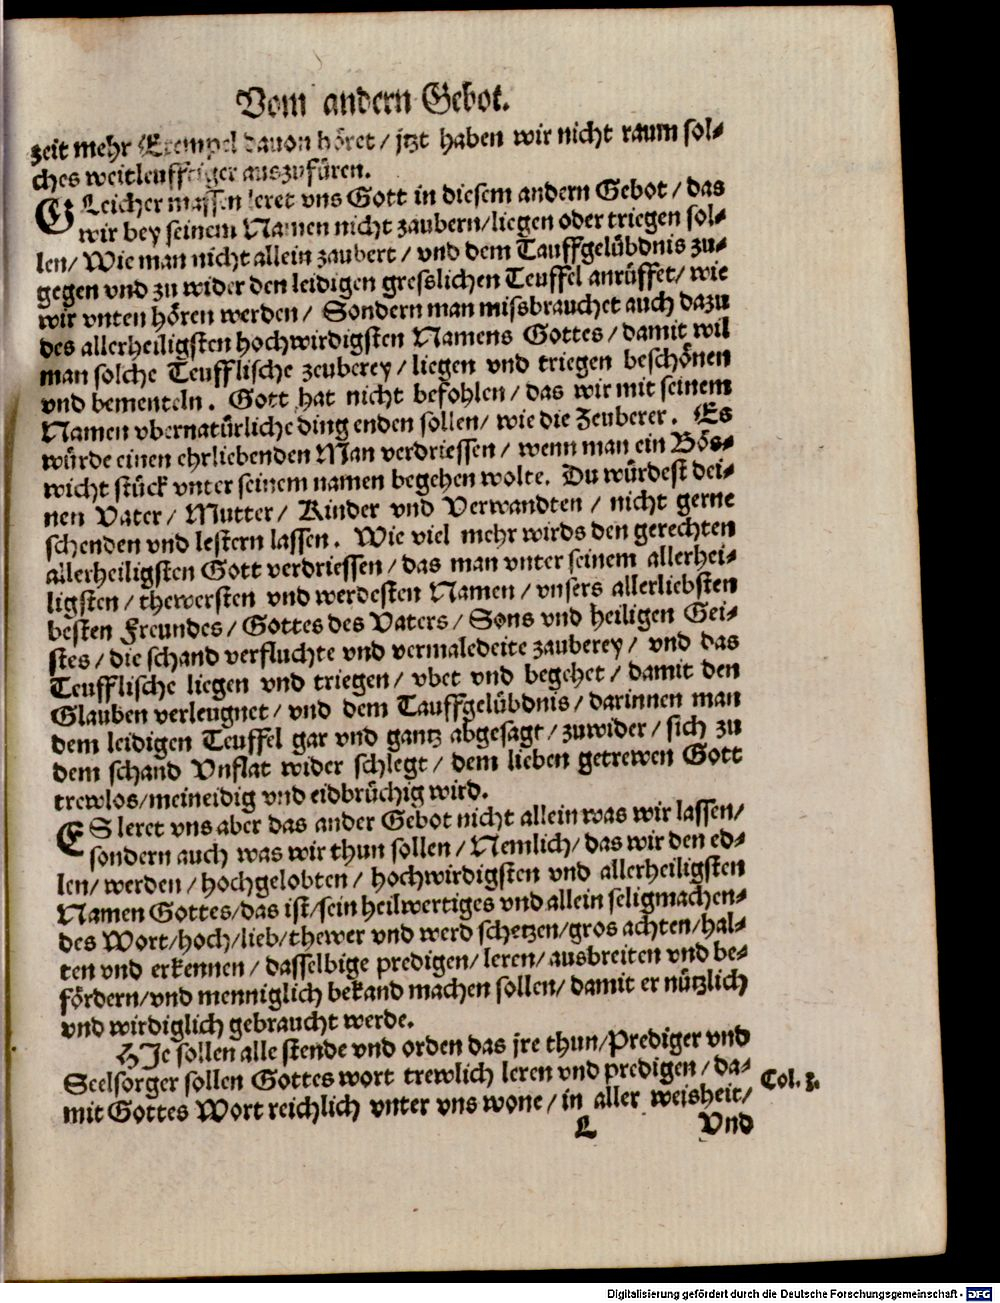 Vom andern Gebot.
zeit mehr Exempel dauon höret / jtzt haben wir nicht raum sol-
ches weitleufftiger auszufüren.
GLeicher massen leret vns Gott in diesem andern Gebot / das
wir bey seinem Namen nicht zaubern/liegen oder triegen sol-
len/ Wie man nicht allein zaubert / vnd dem Tauffgelübdnis zu-
gegen vnd zu wider den leidigen gresslichen Teuffel anrüffet/ wie
wir vnten hören werden / Sondern man missbrauchet auch dazu
des allerheiligsten hochwirdigsten Namens Gottes / damit wil
man solche Teufflische zeuberey / liegen vnd triegen beschönen
vnd bementeln. Gott hat nicht befohlen / das wir mit seinem
Namen vbernatürliche ding enden sollen/ wie die Zeuberer. Es
würde einen ehrliebenden Man verdriessen / wenn man ein Bös-
wicht stück vnter seinem namen begehen wolte. Du würdest dei-
nen Vater / Mutter / Kinder vnd Verwandten / nicht gerne
schenden vnd lestern lassen. Wie viel mehr wirds den gerechten
allerheiligsten Gott verdriessen / das man vnter seinem allerhei-
ligsten / thewersten vnd werdesten Namen / vnsers allerliebsten
besten Freundes / Gottes des Vaters / Sons vnd heiligen Gei-
stes / die schand verfluchte vnd vermaledeite zauberey / vnd das
Teufflische liegen vnd triegen / vbet vnd begehet / damit den
Glauben verleugnet / vnd dem Tauffgelübdnis / darinnen man
dem leidigen Teuffel gar vnd gantz abgesagt / zuwider / sich zu
dem schand Vnflat wider schlegt / dem lieben getrewen Gott
trewlos/meineidig vnd eidbrüchig wird.
ES leret vns aber das ander Gebot nicht allein was wir lassen/
sondern auch was wir thun sollen / Nemlich/ das wir den ed-
len/ werden / hochgelobten / hochwirdigsten vnd allerheiligsten
Namen Gottes/das ist/sein heilwertiges vnd allein seligmachen-
des Wort/hoch/lieb/thewer vnd werd schetzen/gros achten/hal-
ten vnd erkennen / dasselbige predigen/ leren/ ausbreiten vnd be-
fördern/vnd menniglich bekand machen sollen/ damit er nützlich
vnd wirdiglich gebraucht werde.
HIe sollen alle stende vnd orden das jre thun/Prediger vnd
Seelsorger sollen Gottes wort trewlich leren vnd predigen / da-
mit Gottes Wort reichlich vnter vns wone / in aller weisheit/
Col. 3.
L
Vnd
Digitalisierung gefördert durch die Deutsche Forschungsgemeinschaft - DFG